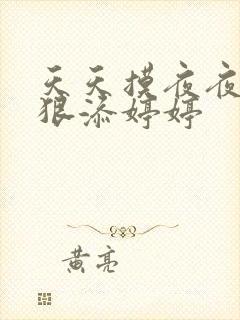 天天摸夜夜
狠添婷婷
黄亮